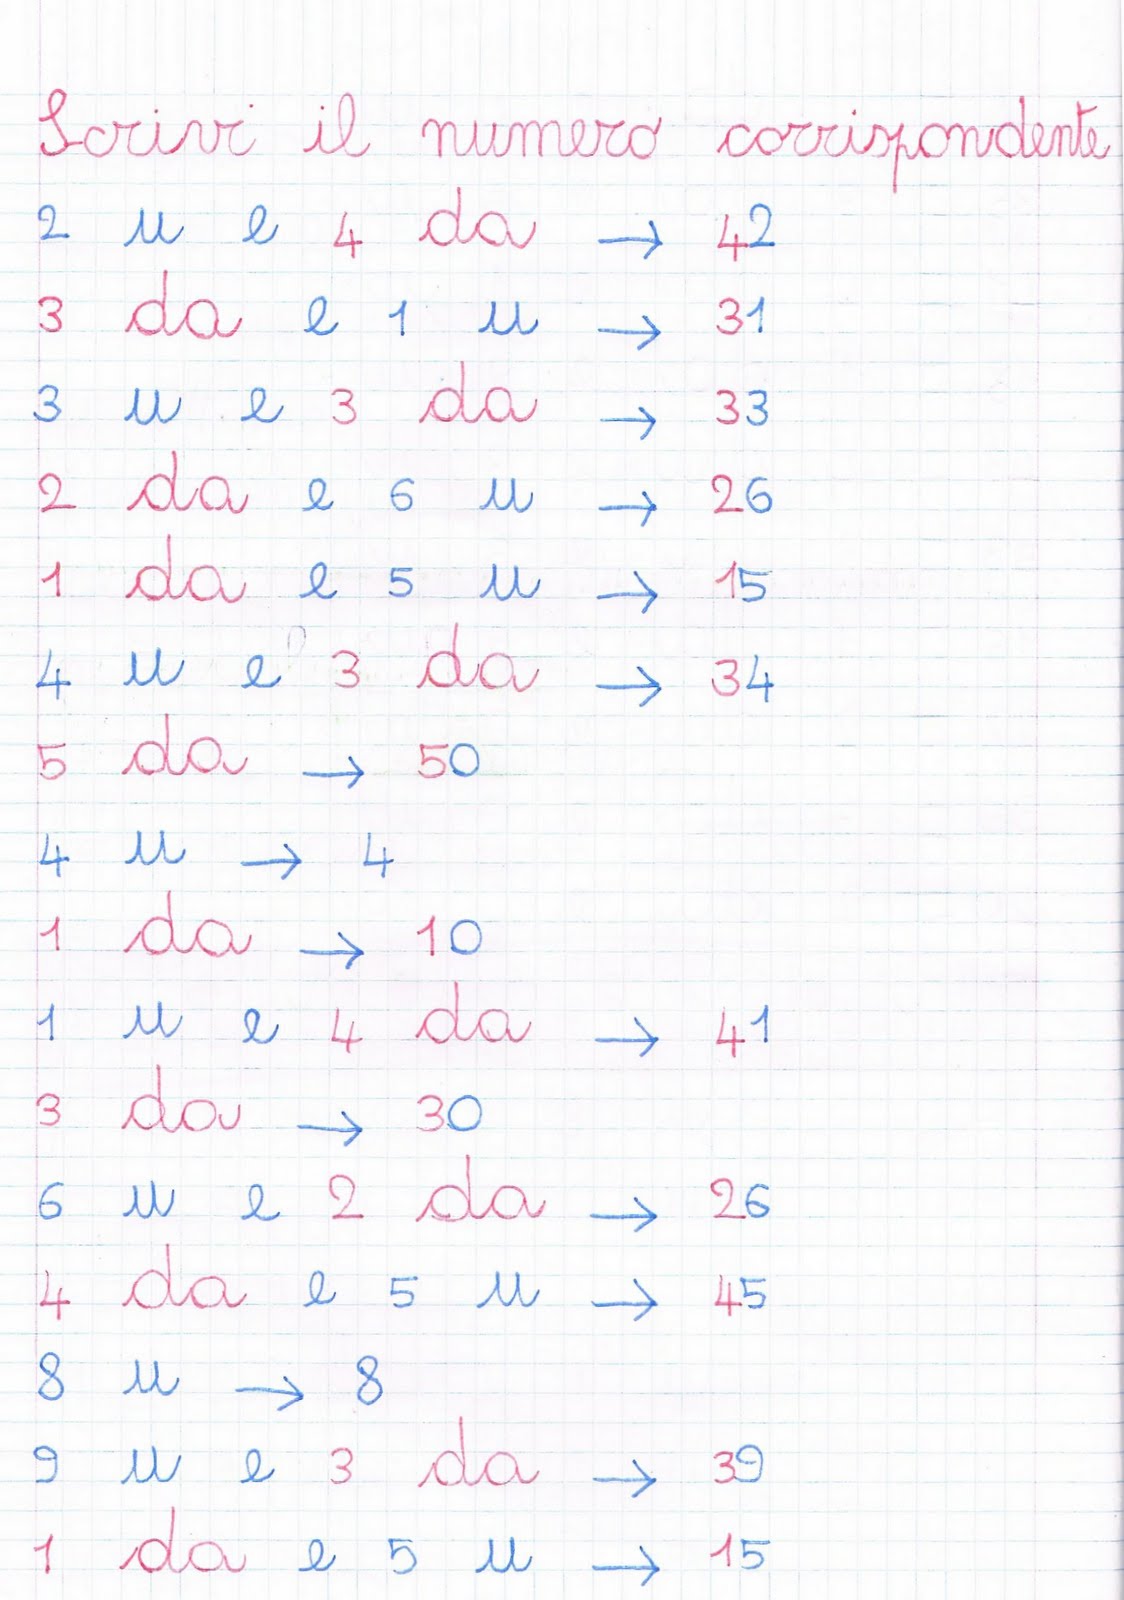 Scrivi il numero corrispondente
2 u e 4 da → 42
3 da e 1 u → 31
3 u e 3 da → 33
2 da e 6 u → 26
1 da e 5 u → 15
4 u e 3 da → 34
5 da → 50
4 u → 4
1 da → 10
1 u e 4 da → 41
3 da → 30
6 u e 2 da → 26
4 da e 5 u → 45
8 u → 8
9 u e 3 da → 39
1 da e 5 u → 15